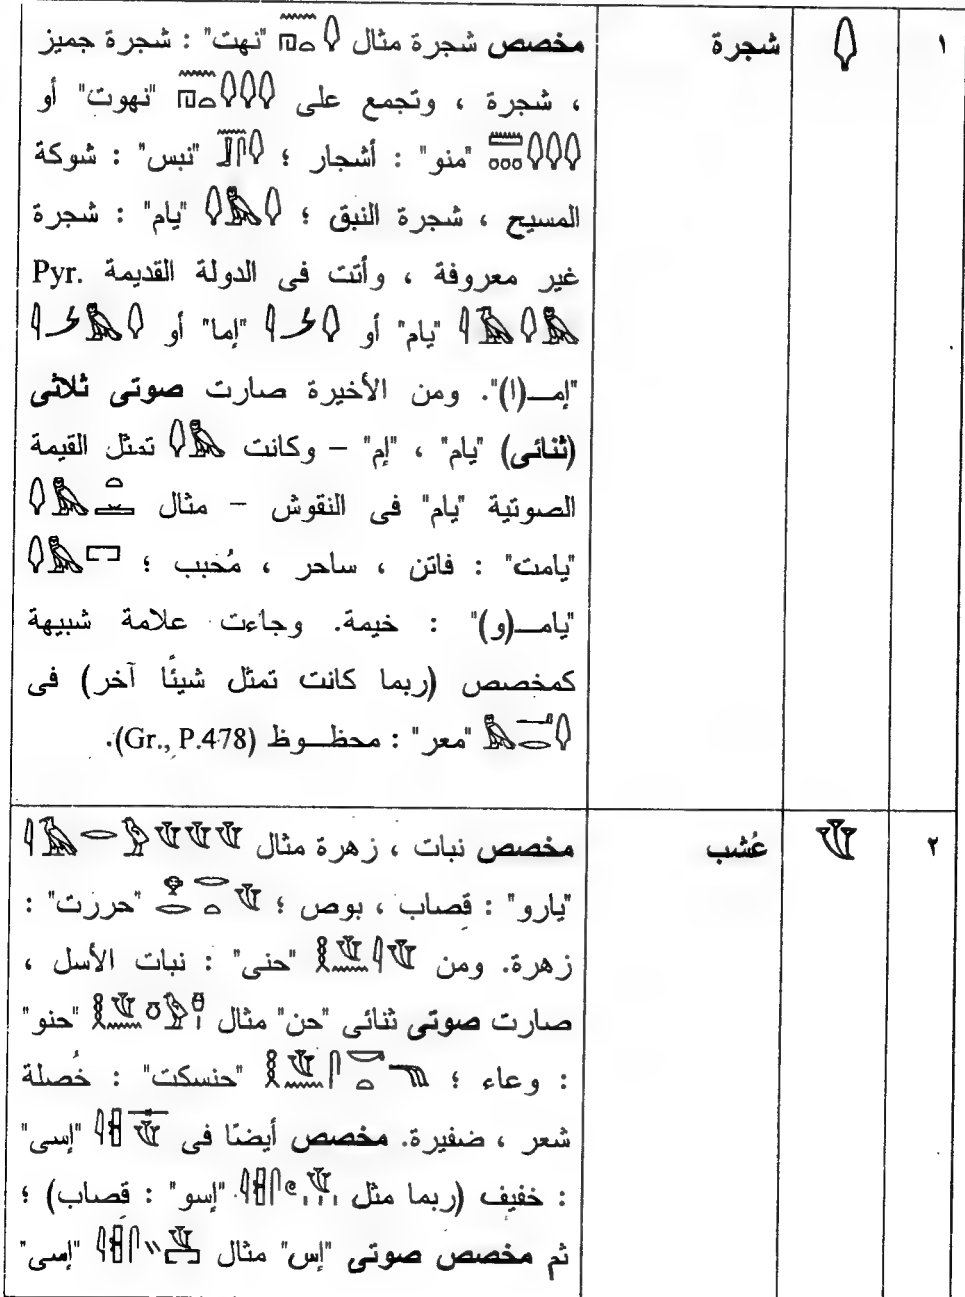 ١ 𓆭 شجرة مخصص شجرة مثال "نهت" : شجرة جميز
، شجرة ، وتجمع على "نهوت" أو
"منو" : أشجار ؛ "نبس" : شوكة
المسيح ، شجرة النبق ؛ "يام" : شجرة
غير معروفة ، وأتت فى الدولة القديمة Pyr.
"يام" أو "إما" أو
"إمـــ(ا)". ومن الأخيرة صارت صوتى ثلاثى
(ثنائى) "يام" ، "إم" – وكانت تمثل القيمة
الصوتية "يام" فى النقوش – مثال
"يامت" : فاتن ، ساحر ، مُحبب ؛
"يامـــ(و)" : خيمة. وجاءت علامة شبيهة
كمخصص (ربما كانت تمثل شيئًا آخر) فى
"معر" : محظــوظ (Gr., P.478).
٢ 𓆰 عُشب مخصص نبات ، زهرة مثال
"يارو" : قصاب ، بوص ؛ "حررت" :
زهرة. ومن "حنى" : نبات الأسل ،
صارت صوتى ثنائى "حن" مثال "حنو"
: وعاء ؛ "حنسكت" : خُصلة
شعر ، ضفيرة. مخصص أيضًا فى "إسى"
: خفيف (ربما مثل "إسو" : قصاب) ؛
ثم مخصص صوتى "إس" مثال "إسى"